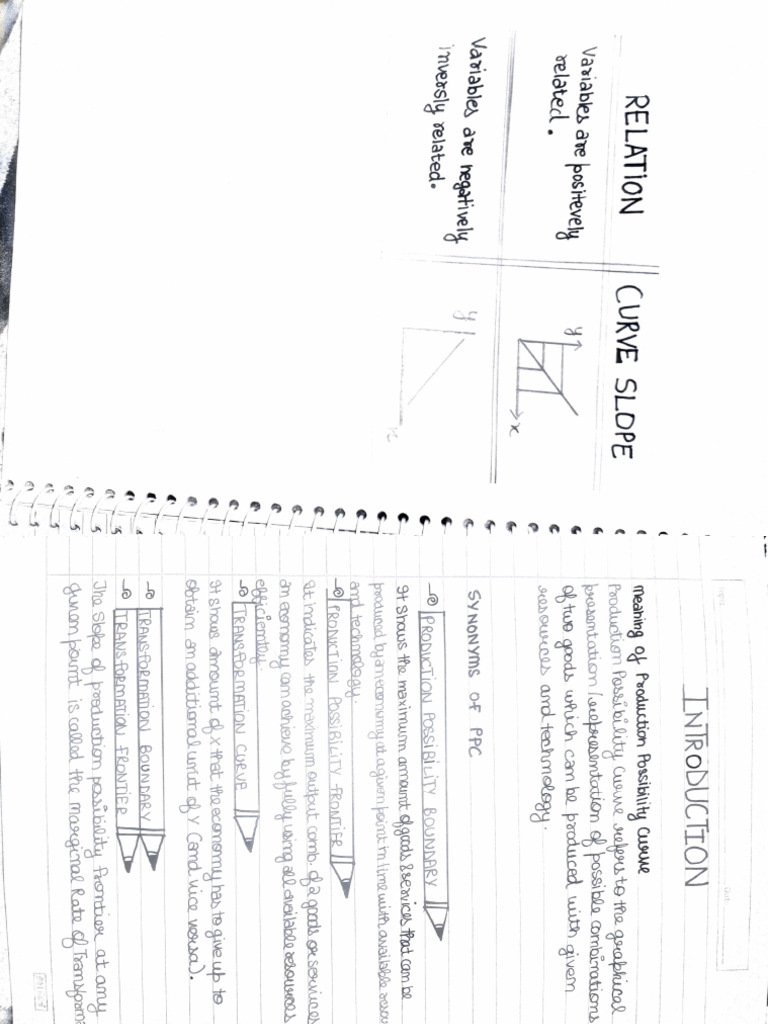 RELATION
CURVE SLOPE
Variables are positevely
related.
y
x
Variables are negatively
inversly related.
y
x
INTRODUCTION
Meaning of Production Possibility Curve
Production Possibility Curve refers to the graphical
presentation/representation of possible combinations
of two goods which can be produced with given
resources and technology.
SYNONYMS OF PPC
PRODUCTION POSSIBILITY BOUNDARY
It shows the maximum amount of goods & services that can be
produced by an economy at a given point in time with available resou
and technology.
PRODUCTION POSSIBILITY FRONTIER
It indicates the maximum output comb. of 2 goods or services
an economy can achieve by fully using all available resources
efficiently.
TRANSFORMATION CURVE
It shows amount of x that the economy has to give up to
obtain an additional unit of y (and vice versa).
TRANSFORMATION BOUNDARY
TRANSFORMATION FRONTIER
The slope of production possibility frontier at any
given point is called the marginal Rate of Transforma